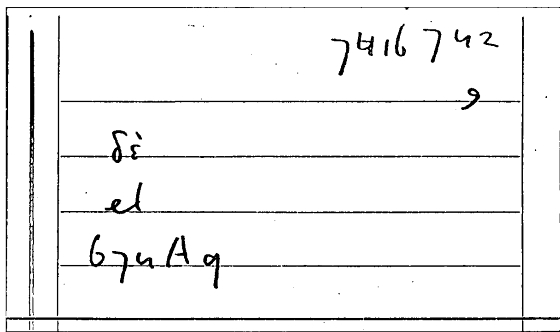 7416 742
9
δὲ
el
67u A9